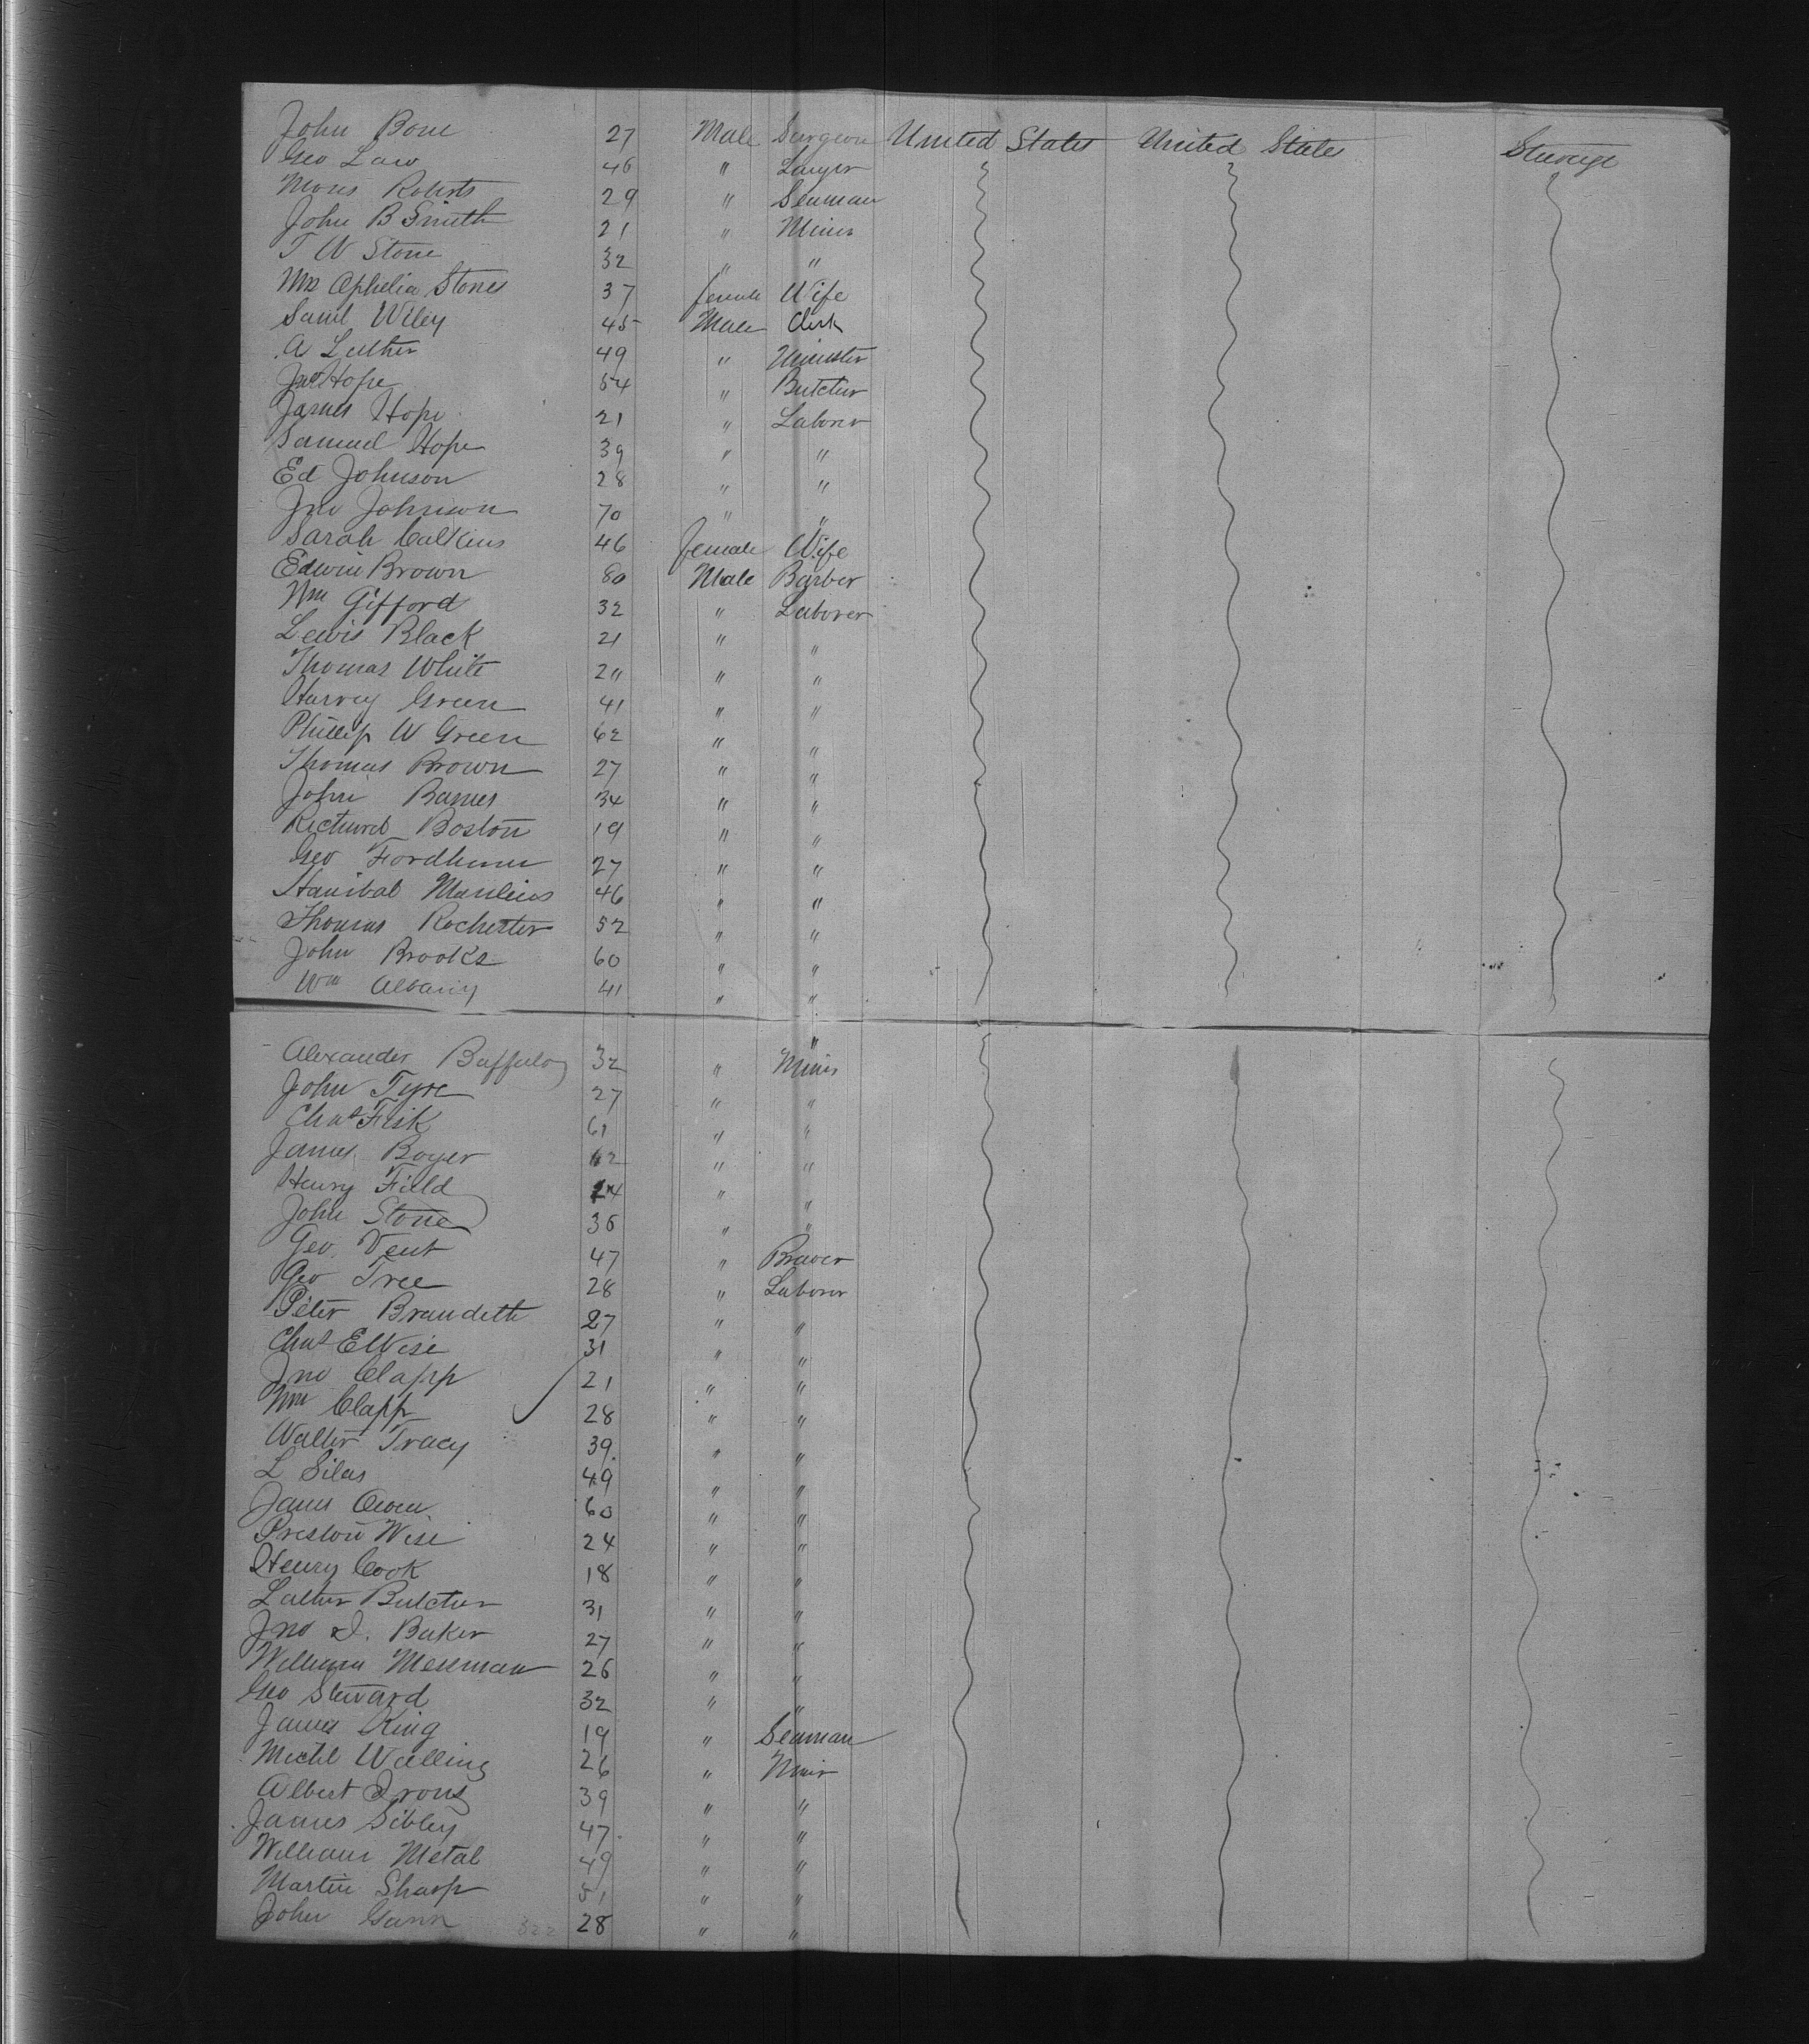 John Bone 27 Male Surgeon United States United States Steerage
Geo Law 46 " Lawyer
Mons Roberts 29 " Seaman
John B Smith 21 " Miner
T W Stone 32 " "
Mrs Ophelia Stones 37 female Wife
Saml Wiley 45 Male Clerk
A Luther 49 " Minister
Jno Hope 54 " Butcher
James Hope 21 " Laborer
Samuel Hope 39 " "
Ed Johnson 28 " "
Jno Johnson 70 " "
Sarah Calkins 46 female Wife
Edwin Brown 80 Male Barber
Wm Gifford 32 " Laborer
Lewis Black 21 " "
Thomas White 211 " "
Harvey Green 41 " "
Phillip W Green 62 " "
Thomas Brown 27 " "
John Barnes 34 " "
Richard Boston 19 " "
Geo Fordham 27 " "
Hanibal Manlius 46 " "
Thomas Rochester 52 " "
John Brooks 60 " "
Wm Albany 41 " "
"
Alexander Buffalo 32 " Miner
John Tyre 27 " "
Chas Fisk 61 " "
James Boyer 42 " "
Henry Field 24 " "
John Stone 36 " "
Geo. Vent 47 " Brewer
Geo Tree 28 " Laborer
Peter Brandeth 27 " "
Chas E Wise 31 " "
Jno Clapp 21 " "
Wm Clapp 28 " "
Walter Tracy 39 " "
L Silas 49 " "
James Owen 60 " "
Preston Wise 24 " "
Henry Cook 18 " "
Luther Butcher 31 " "
Jno I. Baker 27 " "
William Messman 26 " "
Geo Steward 32 " "
James King 19 " Seaman
Michl Walling 26 " Miner
Albert Irons 39 " "
James Sibley 47 " "
William Metal 49 " "
Martin Sharp 51 " "
John Gann 322 28 " "